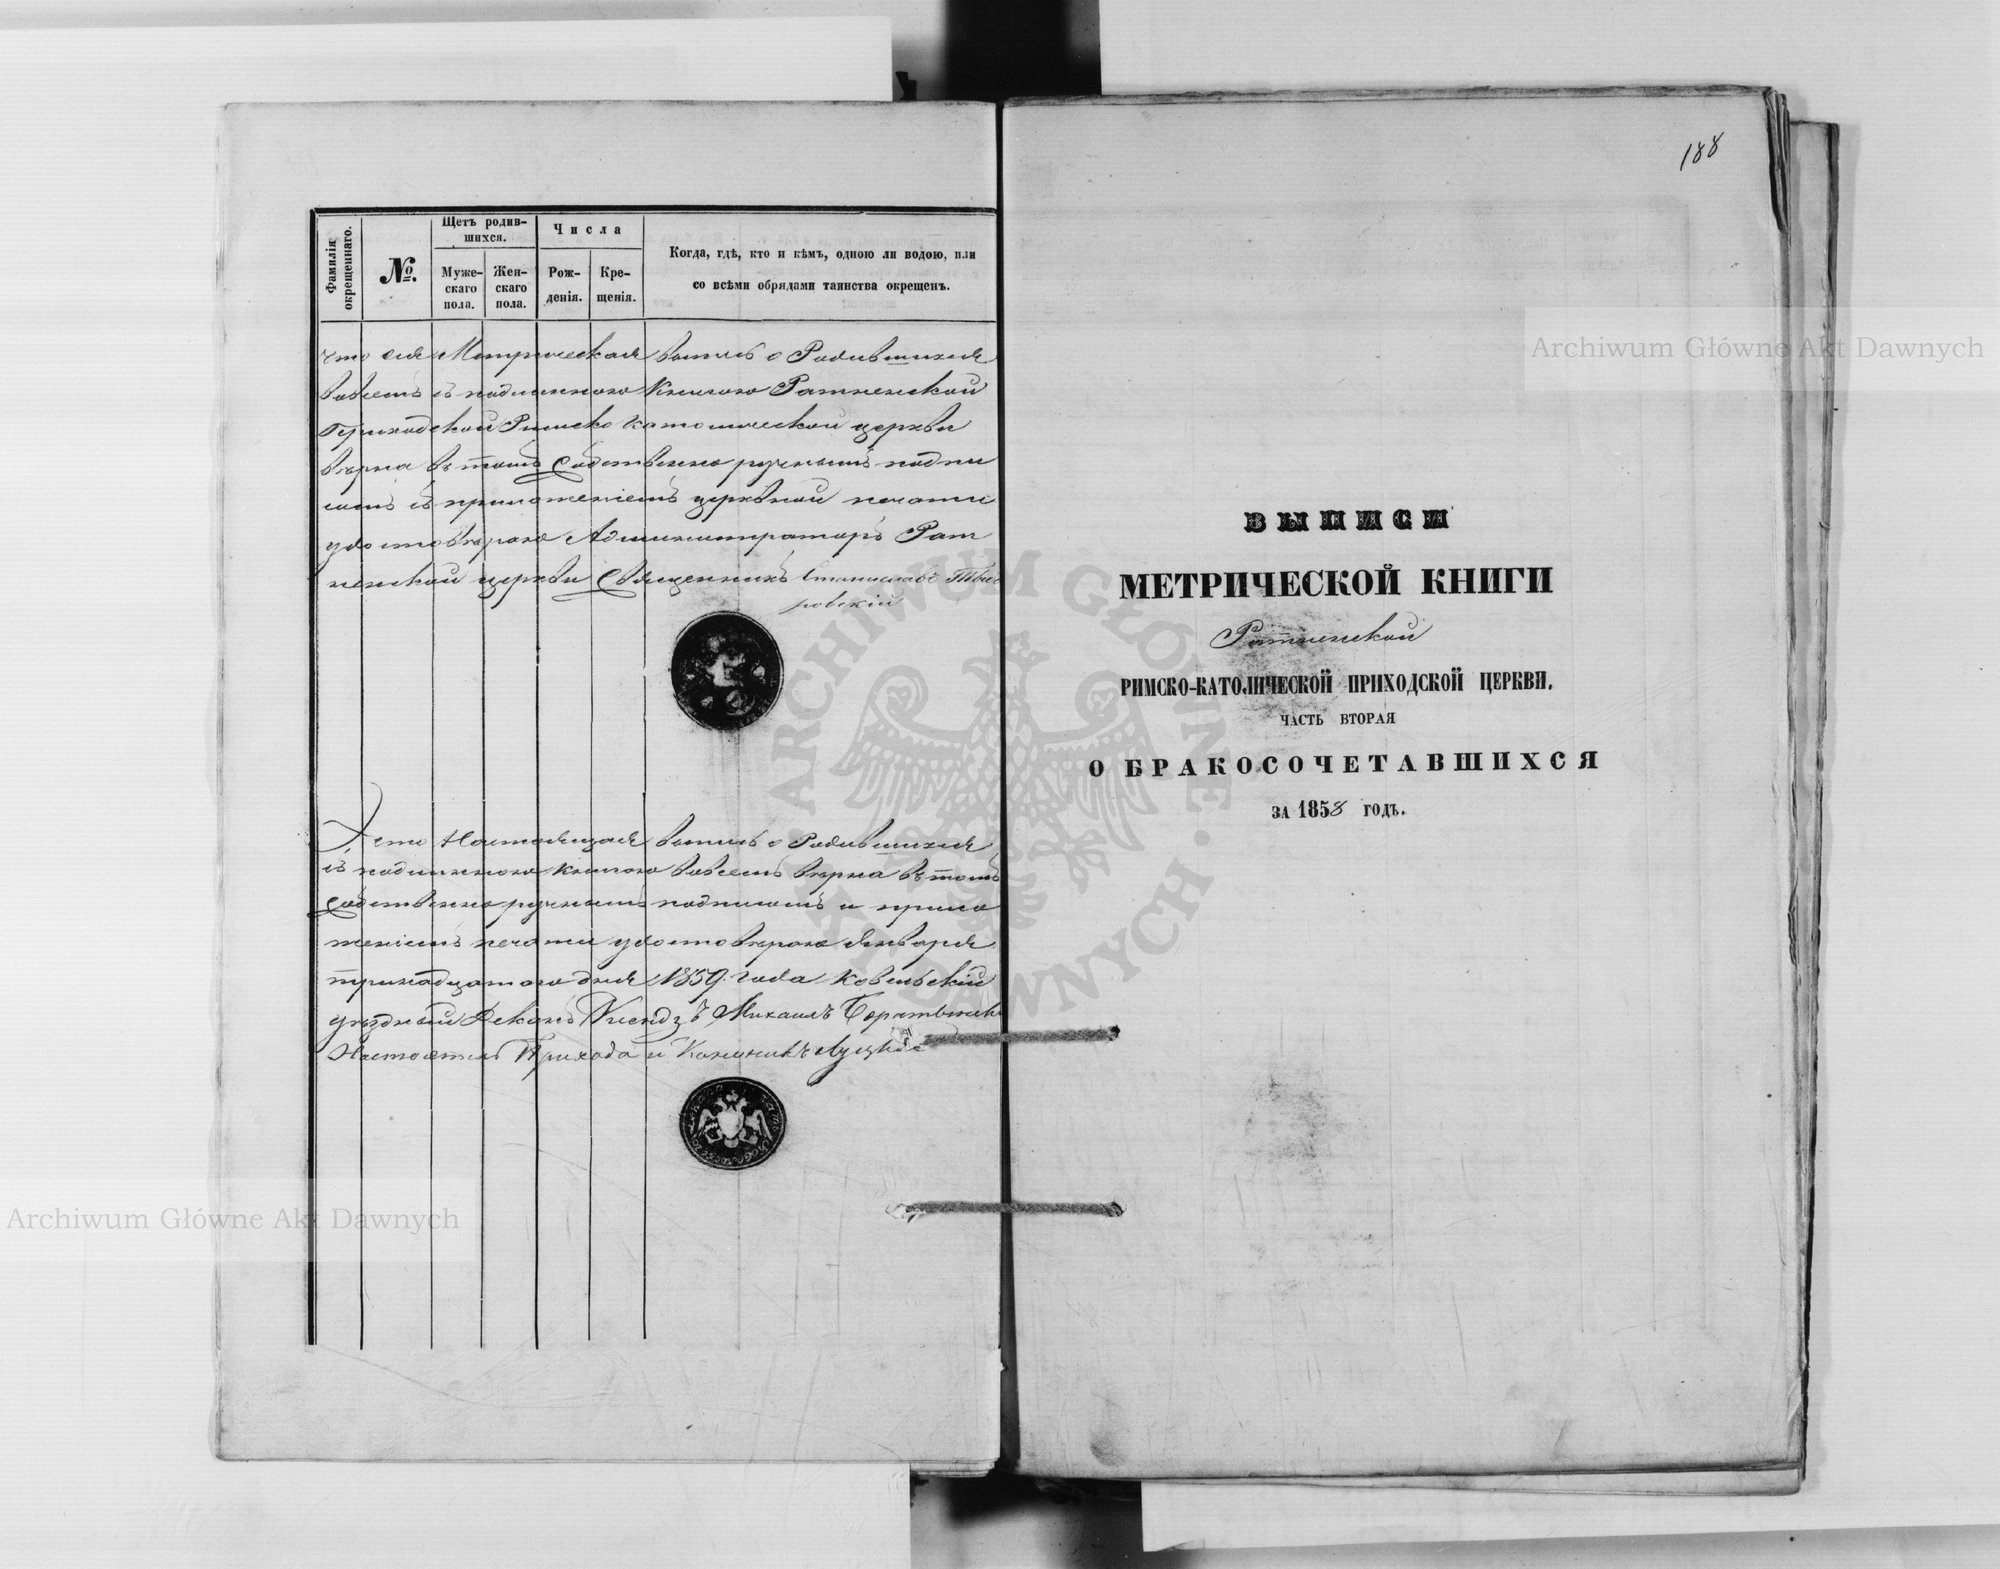 Фамилія окрещеннаго.
№.
Щетъ родив-
шихся.
Муже-
скаго
пола.
Жен-
скаго
пола.
Числа
Рож-
денія.
Кре-
щенія.
Когда, гдѣ, кто и кѣмъ, одною ли водою, или
со всѣми обрядами таинства окрещенъ.
что сія Метрическая выпись о Родившихся
вовсемъ съ подлинною Книгою Ратненской
Приходской Римско Католической церкви
вѣрна въ томъ Собственно ручнымъ подпи
сомъ съ приложеніемъ церковной печати
удостовѣряю Администраторъ Рат
ненской церкви Священникъ Станиславъ
ровскій
что Настоящая выпись о Родившихся
съ подлинною книгою вовсемъ вѣрна въ томъ
Собственноручнымъ подписомъ и прило
женіемъ печати удостовѣряю Января
тринадцатого дня 1859. года Ковельскій
уѣздный Деканъ Ксендзъ Михаилъ
Настоятель Прихода и Каноникъ Луцкій
188
ВЫПИСИ
МЕТРИЧЕСКОЙ КНИГИ
Ратненской
РИМСКО-КАТОЛИЧЕСКОЙ ПРИХОДСКОЙ ЦЕРКВИ.
ЧАСТЬ ВТОРАЯ
О БРАКОСОЧЕТАВШИХСЯ
ЗА 1858 ГОДЪ.
Archiwum Główne Akt Dawnych
Archiwum Główne Akt Dawnych
ARCHIWUM GŁÓWNE AKT DAWNYCH